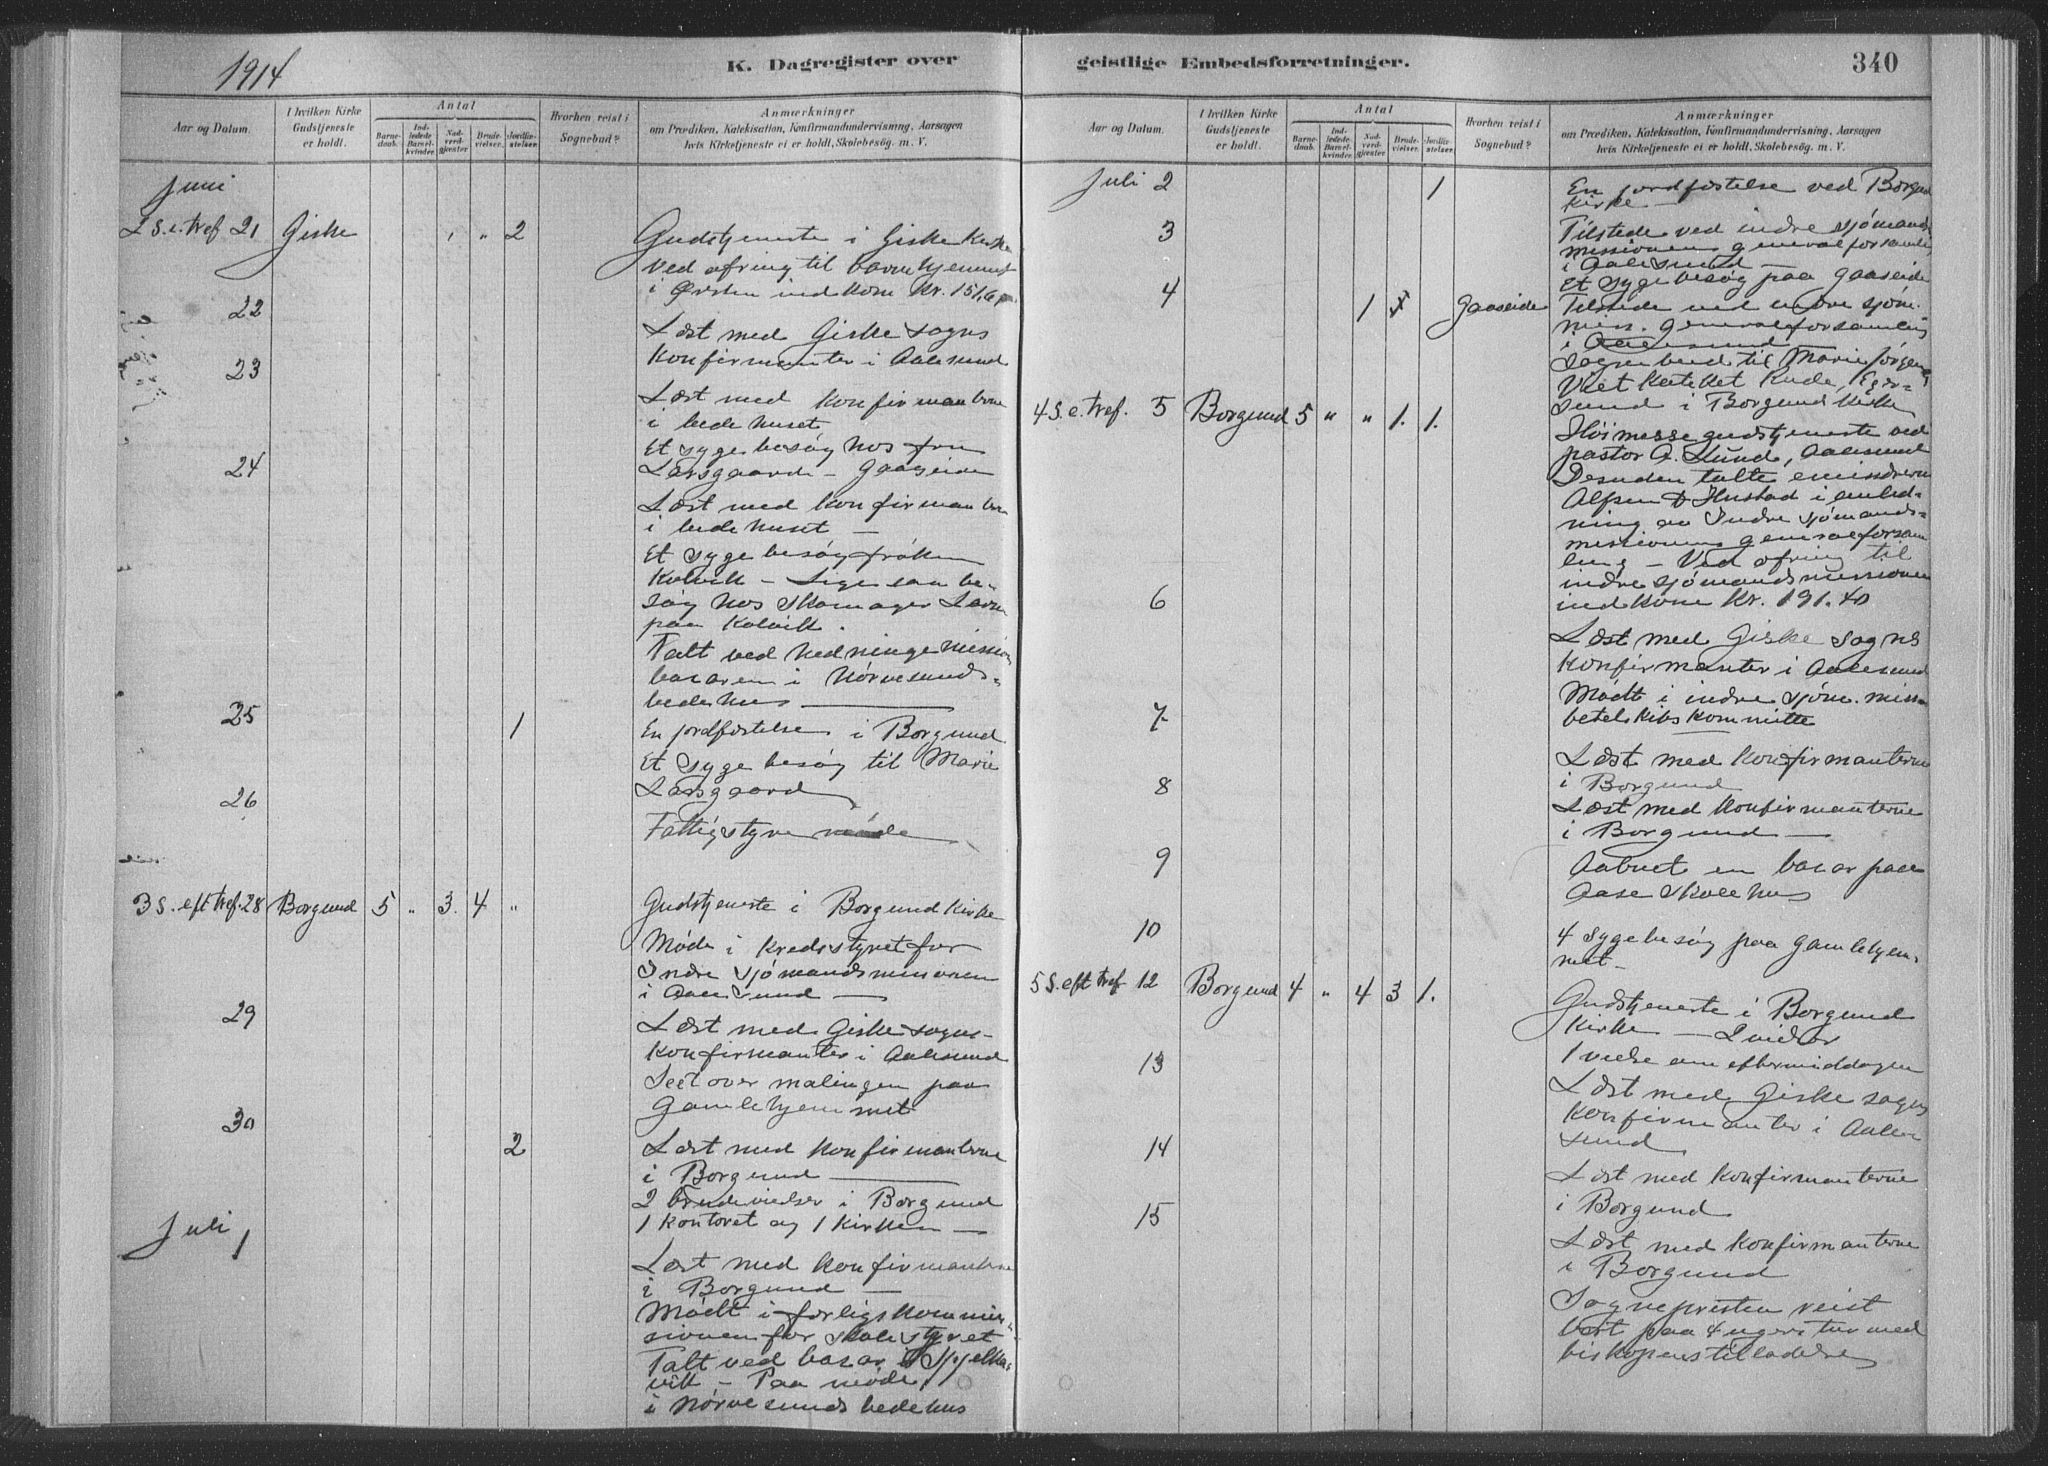 1914
K. Dagregister over
Aar og Datum.
I hvilken Kirke Gudstjeneste er holdt.
Antal
Barnedaab.
Indledede Barselkvinder.
Nadverdgjester
Brudevielser.
Jordfæstelser.
Hvorhen reist i Sognebud?
Anmærkninger
om Prædiken, Katekisation, Konfirmandundervisning, Aarsagen
hvis Kirketjeneste ei er holdt, Skolebesøg. m. V.
Juni
2 S. e. tref 21 Giske " " 2 Gudstjeneste i Giske Kirke
ved ofring til barnehjemmet
i Ørsten indkom Kr. 151,
22
Læst med Giske sogns
Konfirmanter i Aalesund
23
Læst med konfirmanterne
i bedehuset
Et sygebesøg hos fru
Larsgaard - Gaaseide
24
Læst med konfirmanterne
i bedehuset —
Et sygebesøg frøken
Kolvik - Ligesaa be-
søg hos skomager
paa Kolvik.
Talt ved hedningemission
basaren i Nørvesunds-
bedehus —
25 1 En jordfæstelse i Borgund
Et sygebesøg til Marie
Larsgaard
26
Fattigstyremøde
3 S. eft tref. 28 Borgund 5 " 3. 4 " Gudstjeneste i Borgund Kirke
Møde i Kredsstyret for
Indre sjømandsmissionen
i Aalesund —
29
Læst med Giske sogns-
Konfirmanter i Aalesund
Seet over malingen paa
Gamlehjemmet
30
2 Læst med konfirmanterne
i Borgund —
2 brudevielser i Borgund
1 kontoret og 1 Kirken —
Juli
1
Læst med konfirmanterne
i Borgund —
Mødt i forligskommis-
sionen for skolestyret
Talt ved basar i Spjelka-
vik - Paa møde
i Nørvesunds bedehus
geistlige Embedsforretninger.
340
Aar og Datum.
I hvilken Kirke Gudstjeneste er holdt.
Antal
Barnedaab.
Indledede Barselkvinder.
Nadverdgjester
Brudevielser.
Jordfæstelser.
Hvorhen reist i Sognebud?
Anmærkninger
om Prædiken, Katekisation, Konfirmandundervisning, Aarsagen
hvis Kirketjeneste ei er holdt, Skolebesøg. m. V.
Juli 2 1 En jordfæstelse ved Borgund
Kirke —
3 Tilstede ved indre sjømands
missionens generalforsamling
i Aalesund —
Et sygebesøg paa Gaaseide
4 1 Gaaseide Tilstede ved indre sjøm.
miss. generalforsamling
i Aalesund
Sognebud til Marie Jørgens
Viet Katekket Rude, Eger-
sund i Borgund Kirke
4 S. e. tref. 5 Borgund 5 " " 1. 1.
Høimessegudstjeneste ved
pastor A. Lund, Aalesund
Desuden talte emissærerne
Alfsen & Hustad i anled-
ning av Indre sjømands-
missionens generalforsam
ling - Ved ofring til
indre sjømandsmissionen
indkom Kr. 191.40
6
Læst med Giske sogns
Konfirmanter i Aalesund
Mødt i indre sjøm. miss.
betelskibskommitte
7
Læst med konfirmanterne
i Borgund
8
Læst med konfirmanterne
i Borgund —
9
Aabnet en basar paa
Aase Skolehus
10
4 sygebesøg paa Gamlehjem-
met -
5 S. eft tref 12 Borgund 4 " 4 3 1.
Gudstjeneste i Borgund
Kirke — 2 vielser
1 vielse om eftermiddagen
13
Læst med Giske sogns
Konfirmanter i Aale
sund
14
Læst med konfirmanterne
i Borgund
15
Læst med konfirmanterne
i Borgund
Sognepresten reist
bort paa 4 ugers tur med
biskopens tilladelse